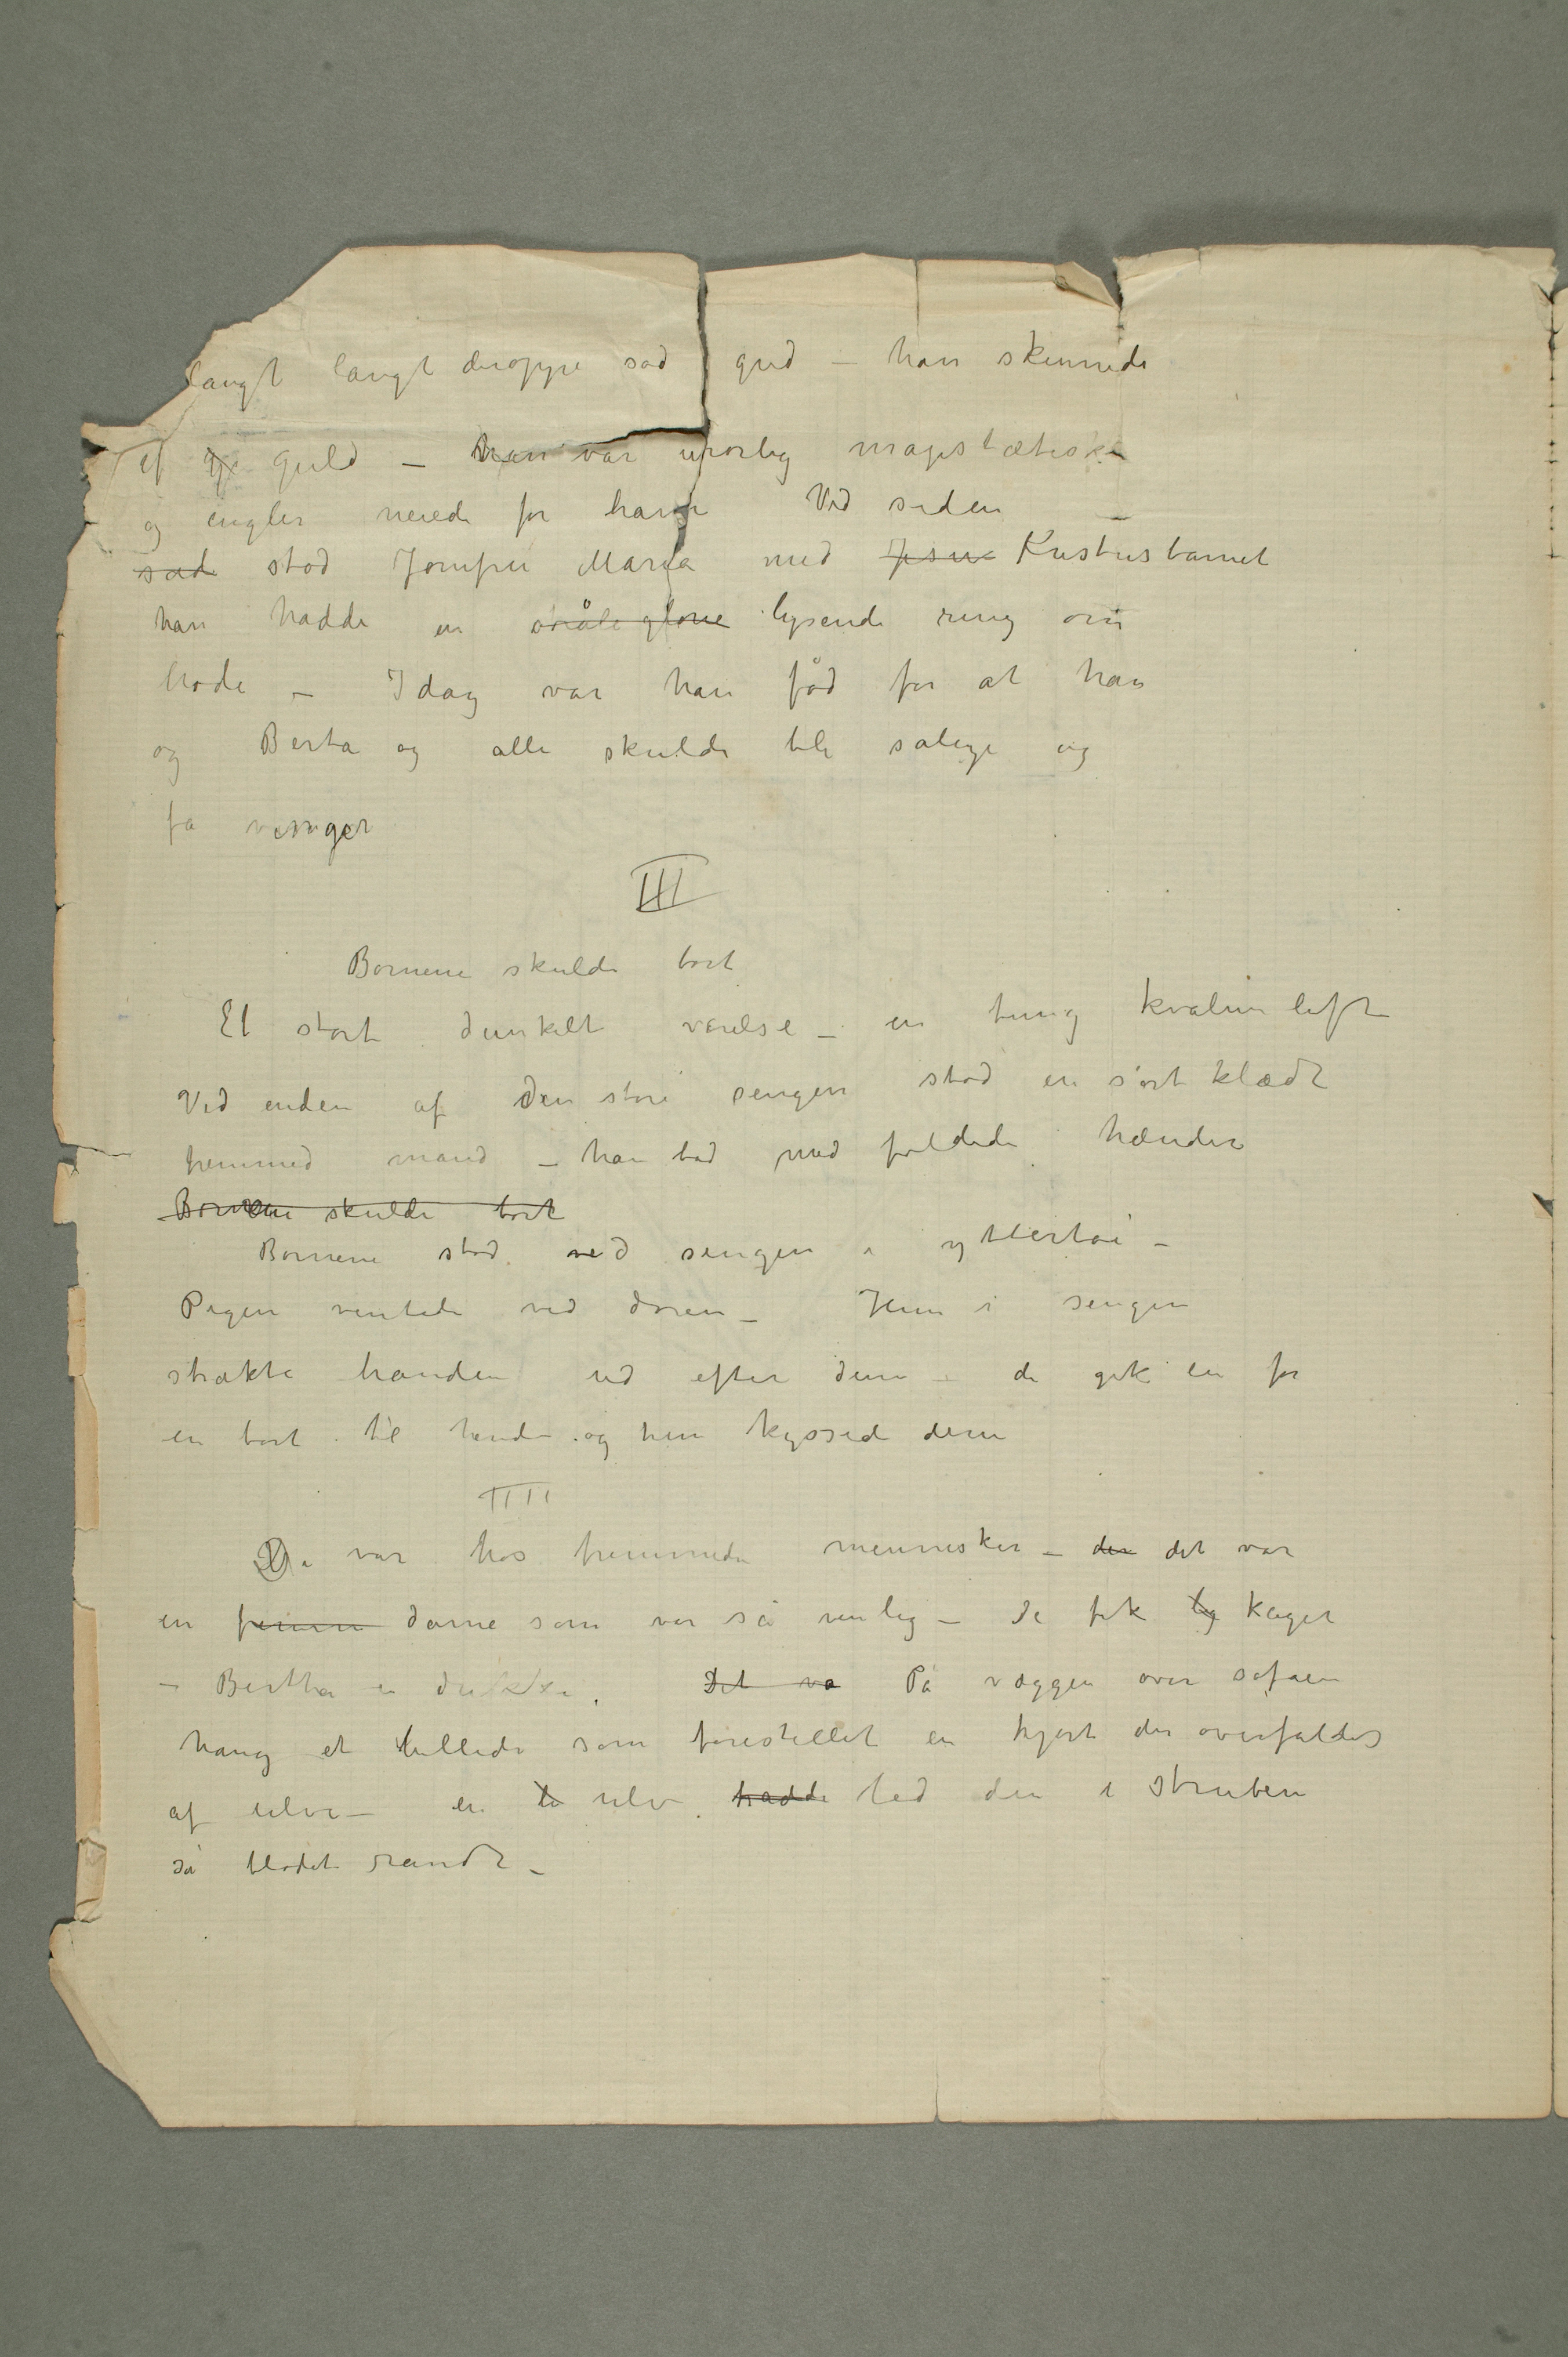 langt langt deroppe sad gud – han skinnede
af gu guld – han var urørlig majestætisk
og engler neiede for ham Ved siden
sad stod Jomfru Maria med Jesu Kristusbarnet
han hadde en lysende ring om
hode – Idag var han fød for at han
og Berta og alle skulde bli salige og
få vinger
III
Børnene skulde bort
Et stort dunkelt værelse – en tung kvalm luft
Ved enden af den store sengen stod en sort klædt
fremmed mand – han bad med foldede hænder
Børnene skulde bort
Børnene stod ved sengen i yttertøi –
Pigen ventede ved døren – Hun i sengen
strakte hånden ud efter dem – de gik en for
en bort til hende og hun kyssed dem
IIII
De var hos fremmede mennesker – der det var
en dame som var så venlig – de fik kager
– Bertha en dukke. Det va På væggen over sofaen
hang et billede som forestillet en hjort der overfaldes
af ulve – en ulv hadde bed den i struben
så blodet randt –